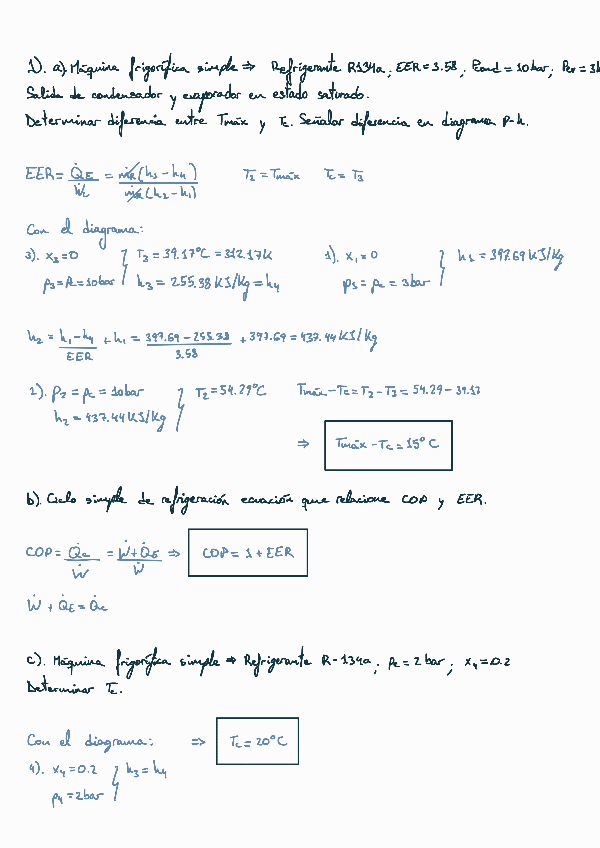 1). a). Máquina frigorífica simple ⇒ Refrigerante R134a; EER = 3.58; Pcond = 10 bar; Pev = 3b
Salida de condensador y evaporador en estado saturado.
Determinar diferencia entre Tmáx y Tc. Señalar diferencia en diagrama P-h.
EER = Q̇E / Ẇc = ṁR(h1 - h4) / ṁR(h2 - h1) T2 = Tmáx Tc = T3
Con el diagrama:
3). x3 = 0 } T3 = 39.17ºC = 312.17K 1). x1 = 0 } h1 = 397.69 KJ/Kg
p3 = Pc = 10bar h3 = 255.38 KJ/Kg = h4 p1 = pe = 3bar
h2 = (h1 - h4) / EER + h1 = (397.69 - 255.38) / 3.58 + 397.69 = 437.44 KJ/Kg
2). p2 = pc = 10bar } T2 = 54.29ºC Tmáx - Tc = T2 - T3 = 54.29 - 39.17
h2 = 437.44 KJ/Kg
⇒ Tmáx - Tc = 15º C
b). Ciclo simple de refrigeración ecuación que relacione COP y EER.
COP = Q̇c / Ẇ = (Ẇ + Q̇E) / Ẇ ⇒ COP = 1 + EER
Ẇ + Q̇E = Q̇c
c). Máquina frigorífica simple ⇒ Refrigerante R-134a; Pe = 2 bar; x4 = 0.2
Determinar Tc.
Con el diagrama: ⇒ Tc = 20ºC
4). x4 = 0.2 } h3 = h4
p4 = 2bar